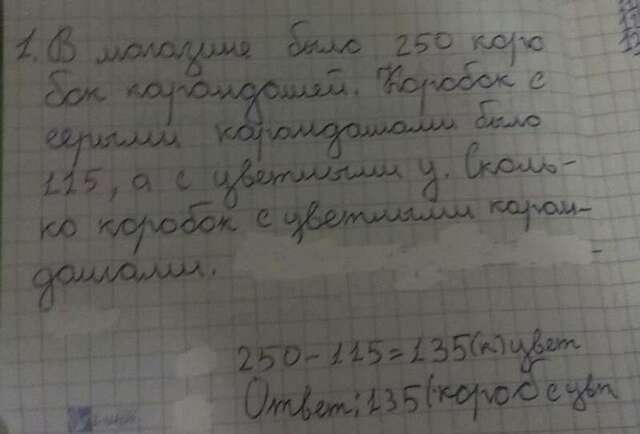 1. В магазине было 250 коро
бок карандашей. Коробок с
серыми карандашами было
115, а с цветными у. Сколь-
ко коробок с цветными каран-
дашами.
250-115=135(к)цвет
Ответ:135(короб с цвт